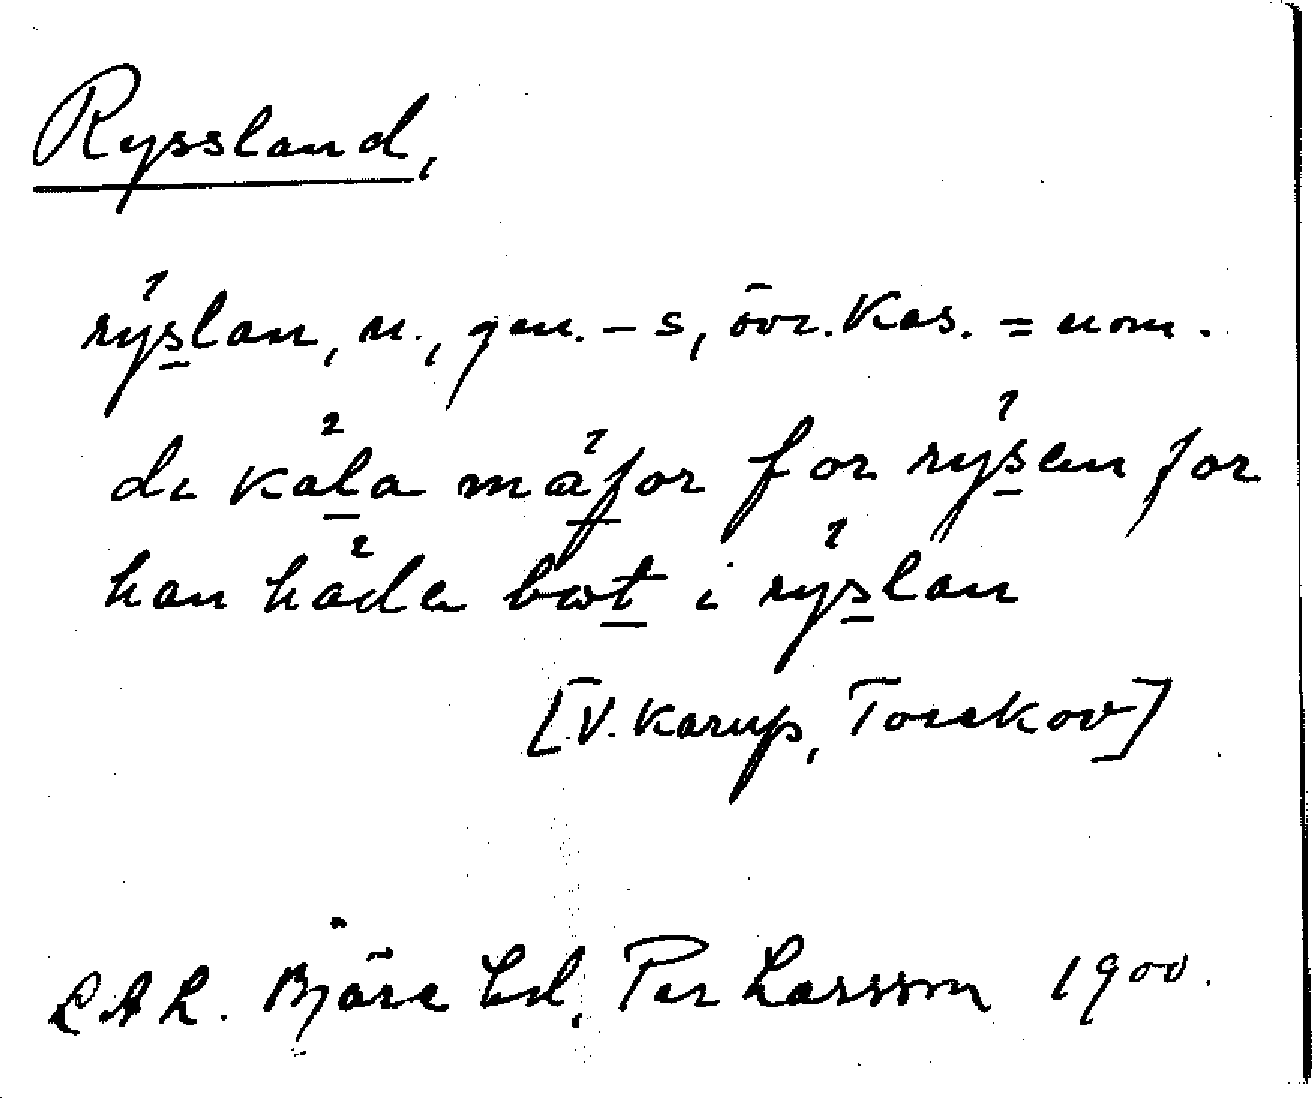 Ryssland,
rýslan, n., gen. - s, övr. kas. = nom.
de kala máfor for rýsen for
han hade bot i rýslan
[V. Karup, Torekov]
L A L. Bjäre hd, Per Larsson 1900.